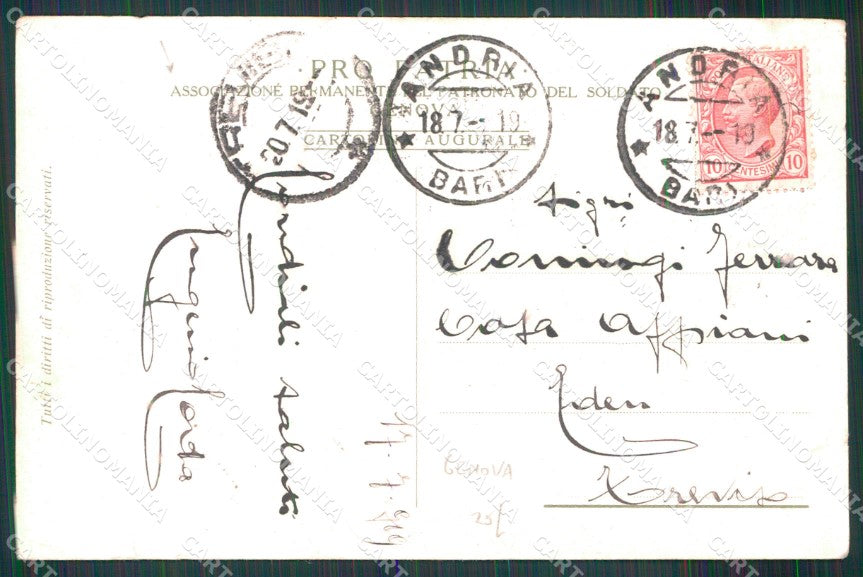 PRO PATRIA
ASSOCIAZIONE PERMANENTE DEL PATRONATO DEL SOLDATO
GENOVA
CARTOLINA AUGURALE
20.7.19
ANDRIA
18.7.-.19
BARI
ANDRIA
18.7.-.19
BARI
10 CENTESIMI 10
Tutti i diritti di riproduzione riservati.
Cordiali saluti
Eugenia
17-7-919
Sigri
Ferrara
Casa Appiani
Eden
Treviso
GENOVA
25/
CARTOLINOMANIA